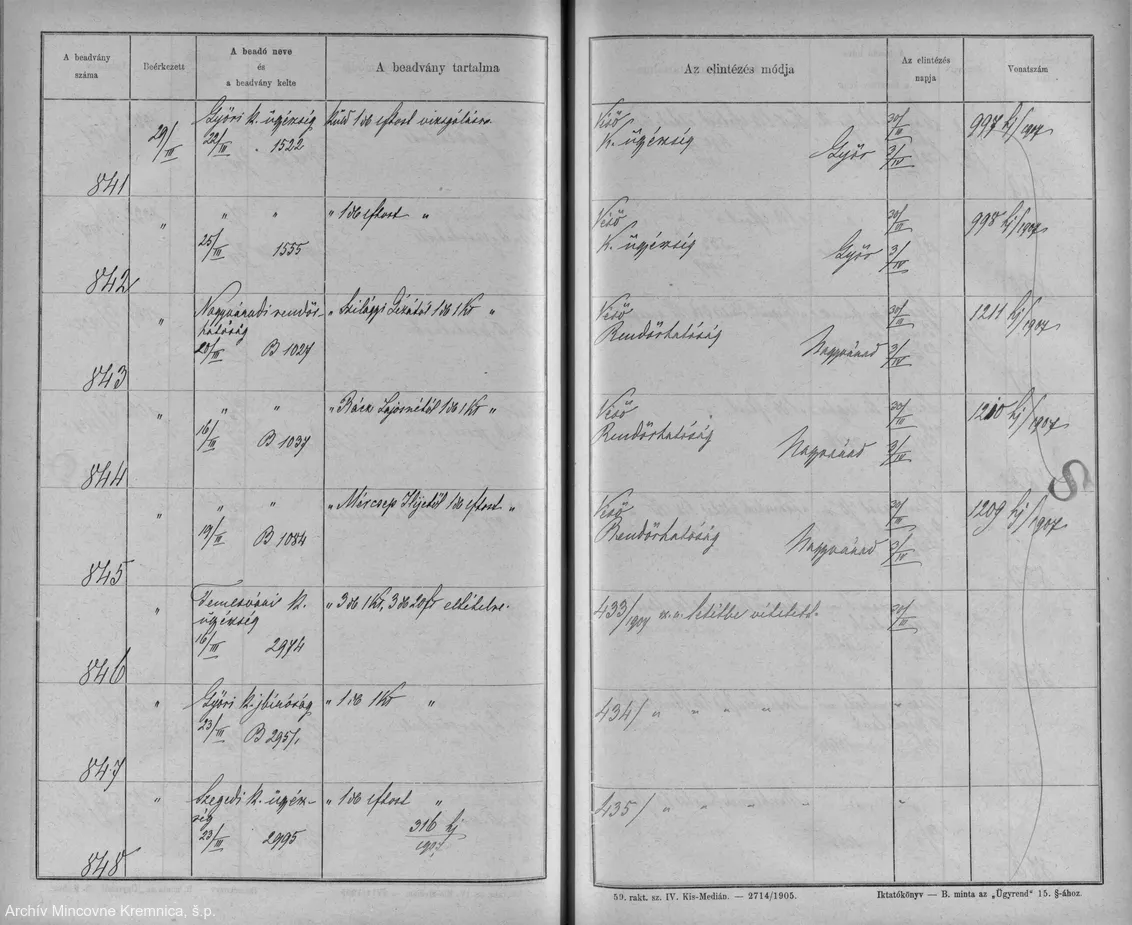 A beadvány
száma
Beérkezett
A beadó neve
és
a beadvány kelte
A beadvány tartalma
Az elintézés módja
Az elintézés
napja
Vonatszám
841
29/III
Győri k. ügyészség
22/III . 1522
küld 1 db eftost vizsgálásra
Véső
K. ügyészség
Győr
30/III
3/IV
997 hj/1907
842
"
" "
25/III 1555
" 1 db eftost "
Véső
K. ügyészség
Győr
30/III
3/IV
998 hj/1907
843
"
Nagyváradi rendőr-
hatóság
20/III B 1027
" Szilágyi 1 db 1 Kr "
Véső
Rendőrhatóság
Nagyvárad
30/III
3/IV
1211 hj/1907
844
"
" "
16/III B 1037
" Rácz Lajosnétól 1 db 1 Kr "
Véső
Rendőrhatóság
Nagyvárad
30/III
3/IV
1210 hj/1907
845
"
" "
19/III B 1084
" 1 db eftost "
Véső
Rendőrhatóság
Nagyvárad
30/III
3/IV
1209 hj/1907
8
846
"
Temesvári k.
ügyészség
16/III 2974
" 3 db 1 Kr, 3 db 20 f
433/1907 letétbe vétetett.
30/III
847
"
Győri k. jbíróság
23/III B 295/1
" 1 db 1 Kr "
434/ " " " "
"
848
"
Szegedi k. ügyész-
ség
23/III 2995
" 1 db eftost "
316 hj
1907
435/ " " " "
"
59. rakt. sz. IV. Kis-Medián. — 2714/1905.
Iktatókönyv — B. minta az „Ügyrend“ 15. §-ához.
Archív Mincovne Kremnica, š.p.